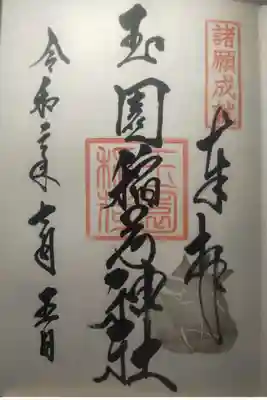 諸願成就
奉拝
玉園稲荷神社
令和二年七月五日